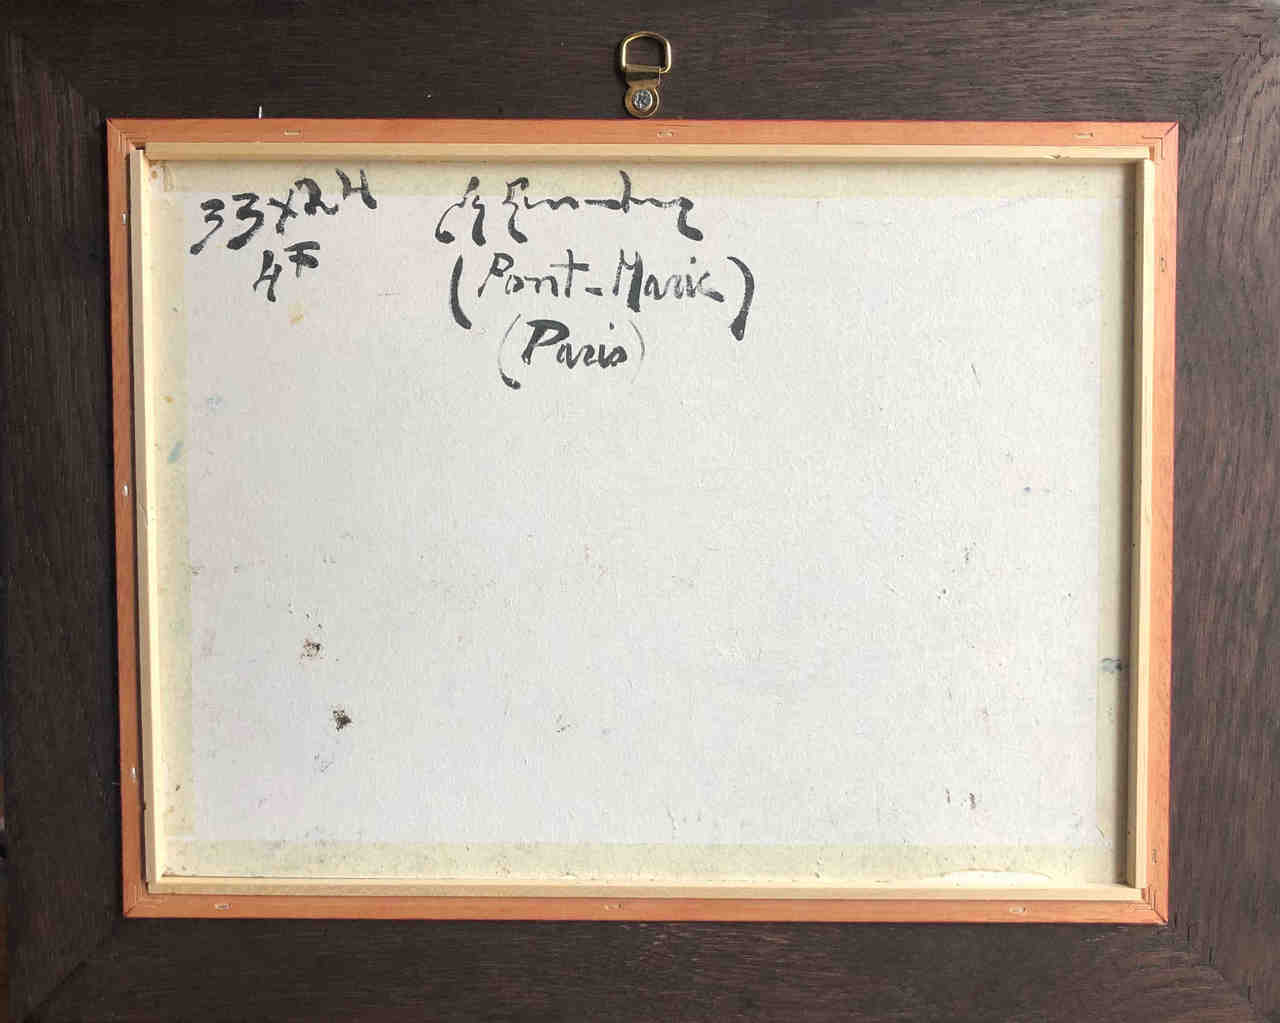 33x24
4F
(Pont-Marie)
(Paris)